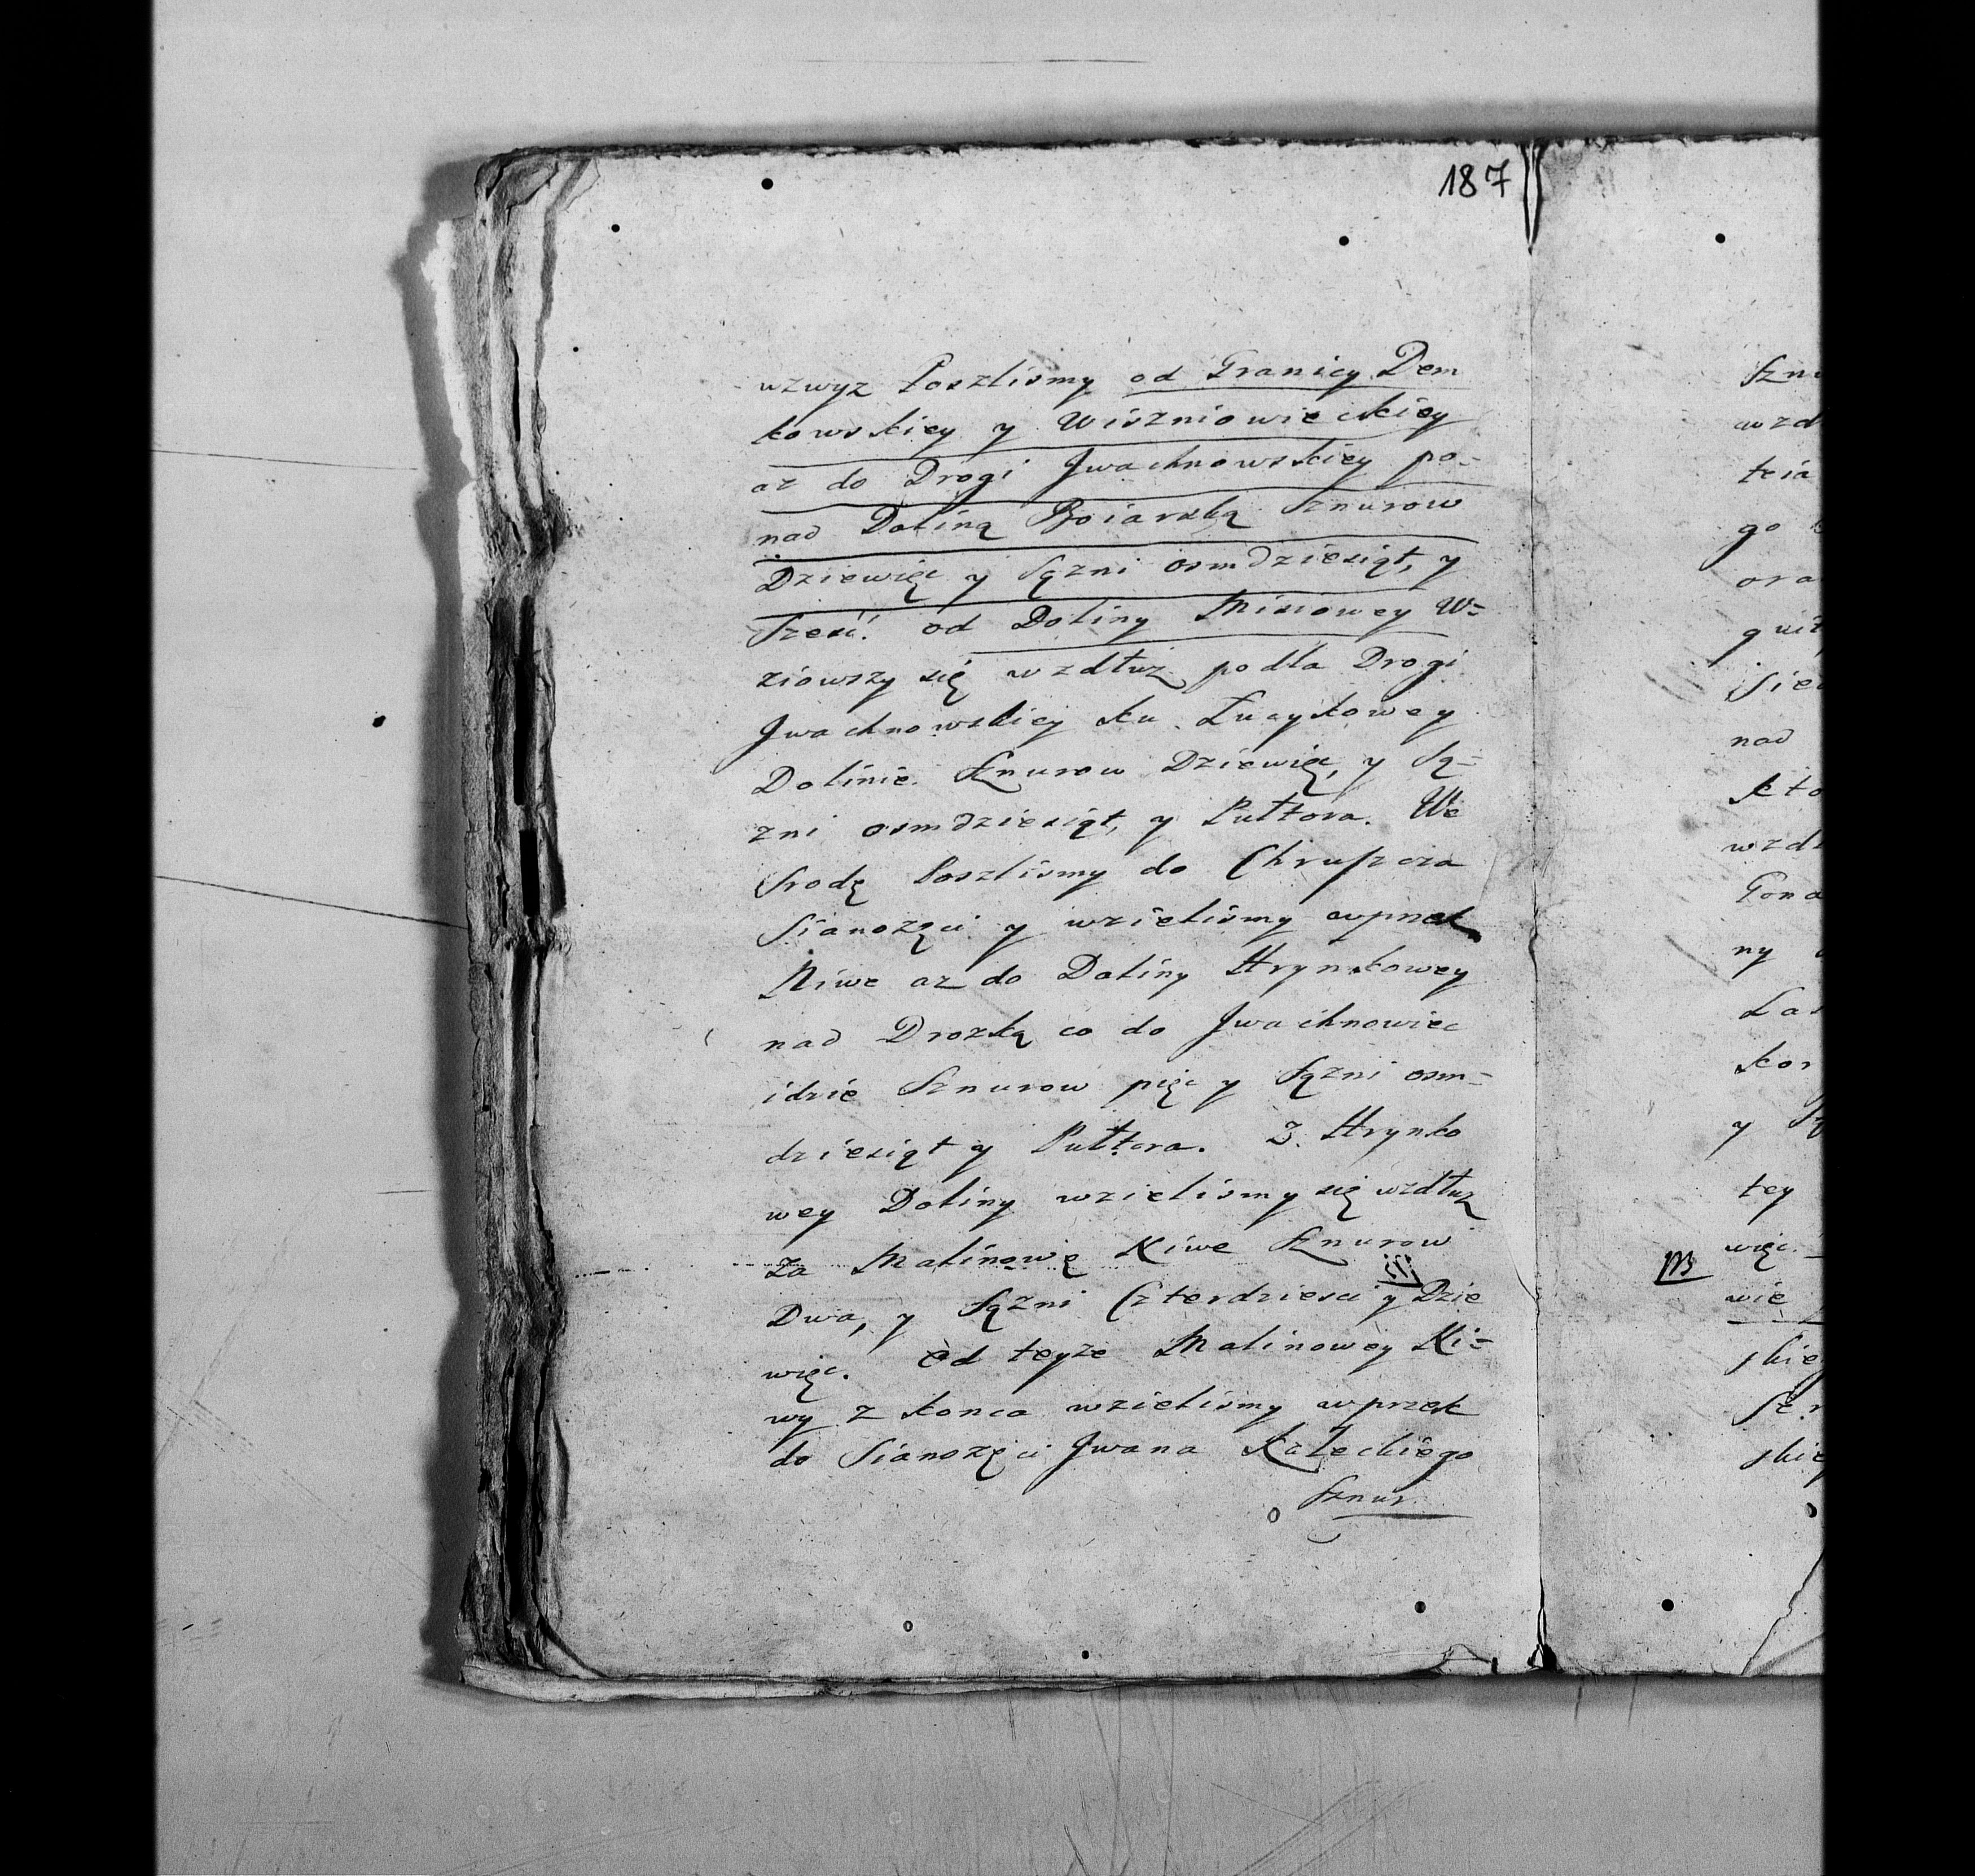 187
wzwyz Poszlismy od Granicy Dem
kowskiey y Wiszniowieckiey
az do Drogi Jwachnowskiey po-
nad Doliną Boiarską Sznurow
Dziewięc y Sązni osmdziesiąt, y
Szesć. od Doliny Misiowey W-
ziowszy się wzdłuz podla Drogi
Jwachnowskiey ku Łucykowey
Dolinie. Sznurow Dziewięc, y Są-
zni osmdziesiąt, y Pułtora. We
Srodę Poszlismy do Chruszcza
Sianozęci y wzielismy wprzek
Niwe az do Doliny Hrynkowey
nad Drozką co do Jwachnowiec
idzie Sznurow pięc y Sązni osm-
dziesiąt y Pułtora. Z. Hrynko
wey Doliny wzielismy się wzdłuz
Za Malinowę Niwe Sznurow
Dwa, y Sązni Czterdziesci y Dzie
więc. Od teyze Malinowey Ni-
wy z konca wzielismy wprzek
do Sianozęci Jwana
Sznur.
Szn
wzd
teia
go
ora
Sie
nad
kto
wzdł
Pona
ny
Las
kor
y
tey
więc.
wie
skie
skie